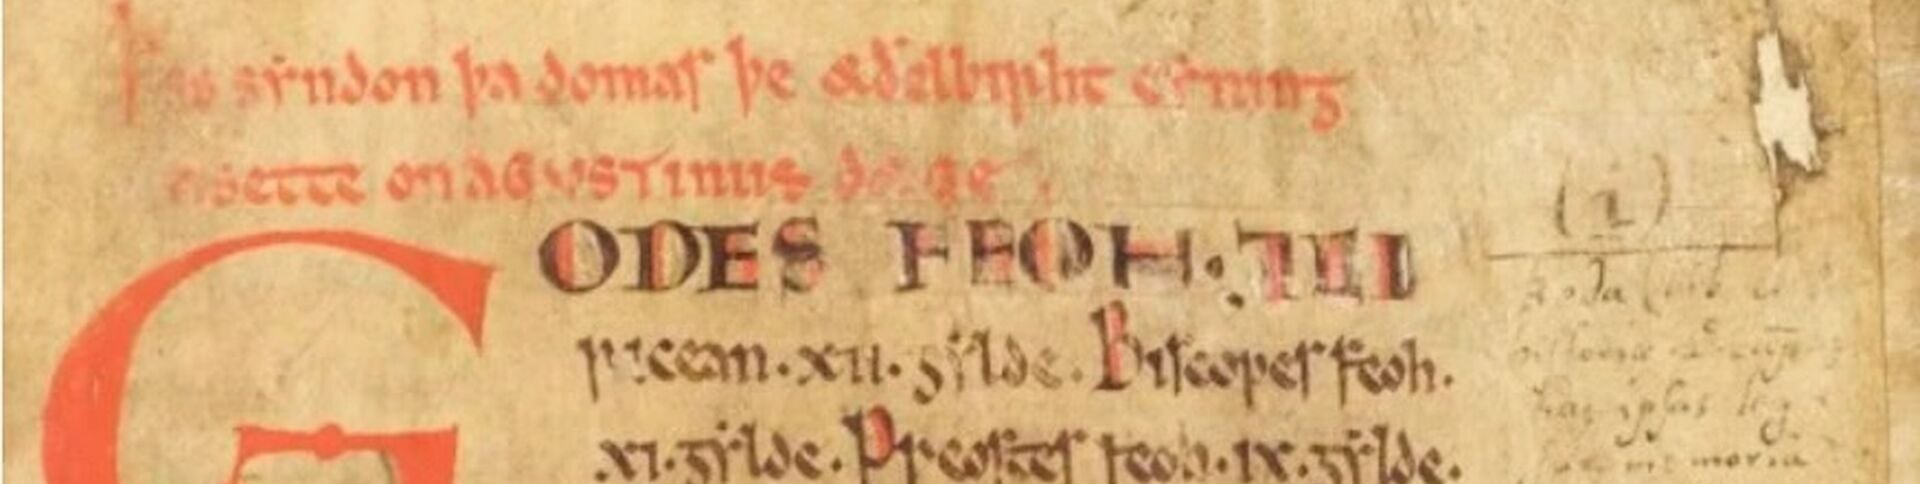 Þis syndon þa domas þe æðelbirht cyning
asette on AGVSTINUS dæge.
GODES FEOH. ⁊ CI
ricean .xii. gylde. Biscopes feoh.
.xi. gylde. Preostes feoh .ix. gylde.
(1)
has ipsas leg
memoria